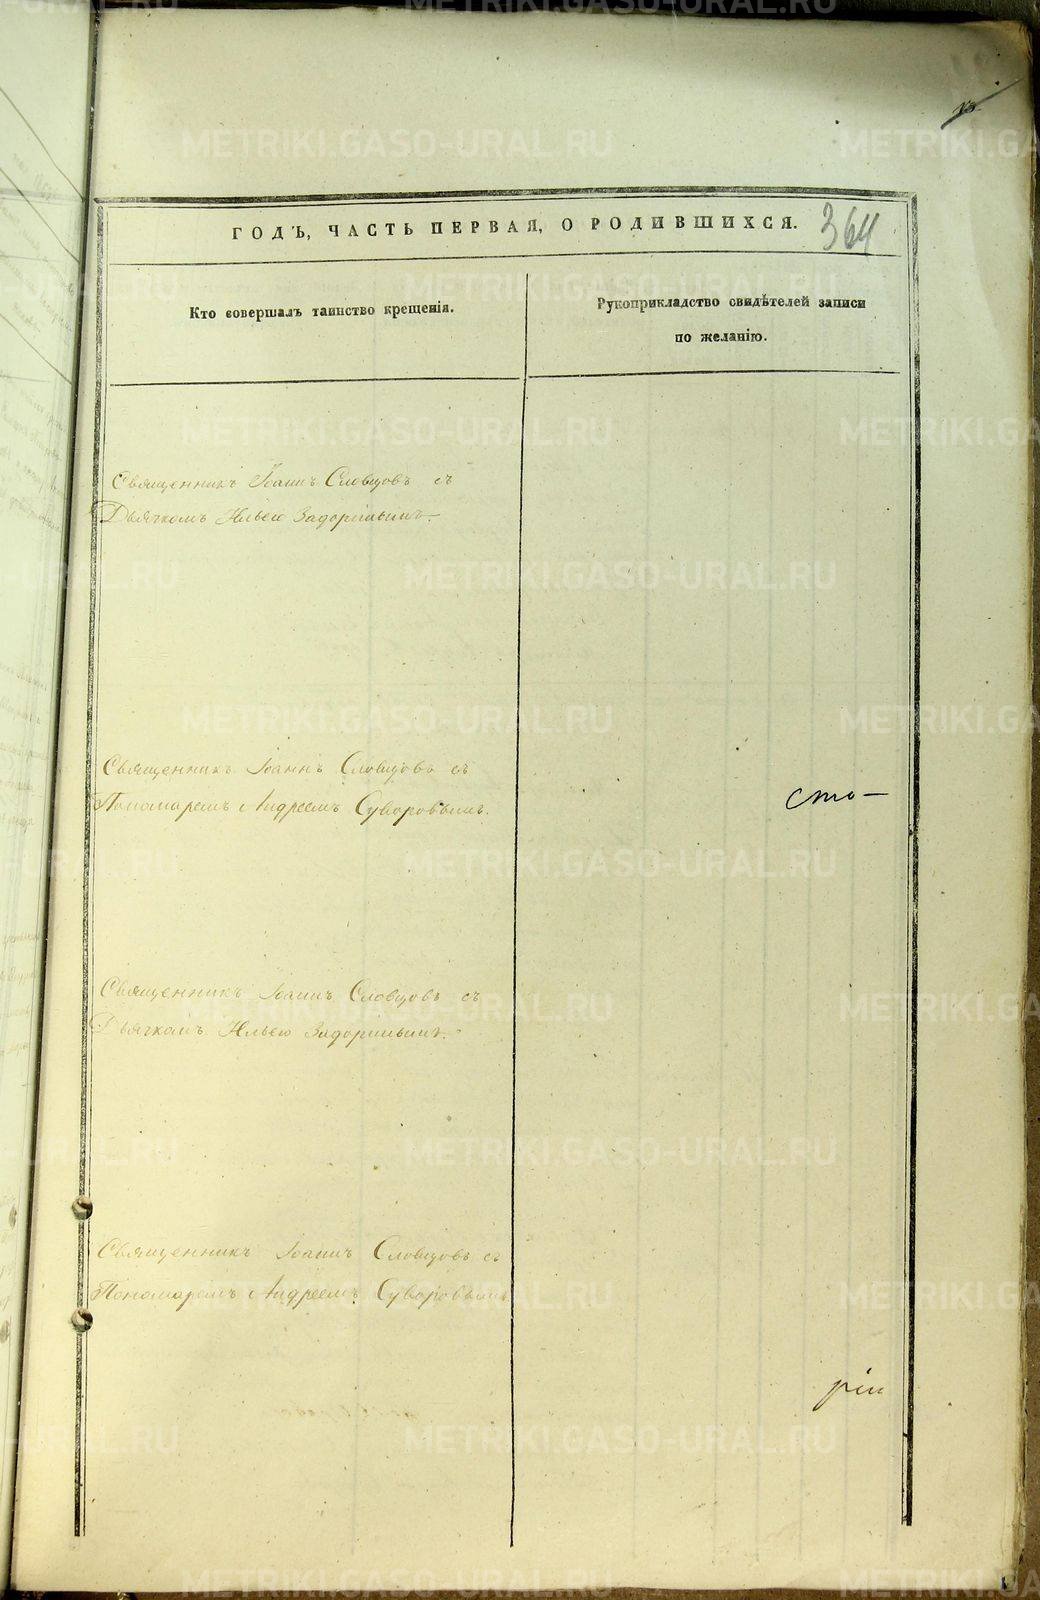 ГОДЪ, ЧАСТЬ ПЕРВАЯ, О РОДИВШИХСЯ.
364
Кто совершалъ таинство крещенія.
Рукоприкладство свидѣтелей записи
по желанію.
Священникъ Іоаннъ Словцовъ съ
Дьячкомъ Ильею Задоринымъ.
Священникъ Іоаннъ Словцовъ съ
Пономаремъ Андреемъ Суворовымъ.
сто-
Священникъ Іоаннъ Словцовъ съ
Дьячкомъ Ильею Задоринымъ.
Священникъ Іоаннъ Словцовъ съ
Пономаремъ Андреемъ Суворовымъ
ріи
METRIKI.GASO-URAL.RU